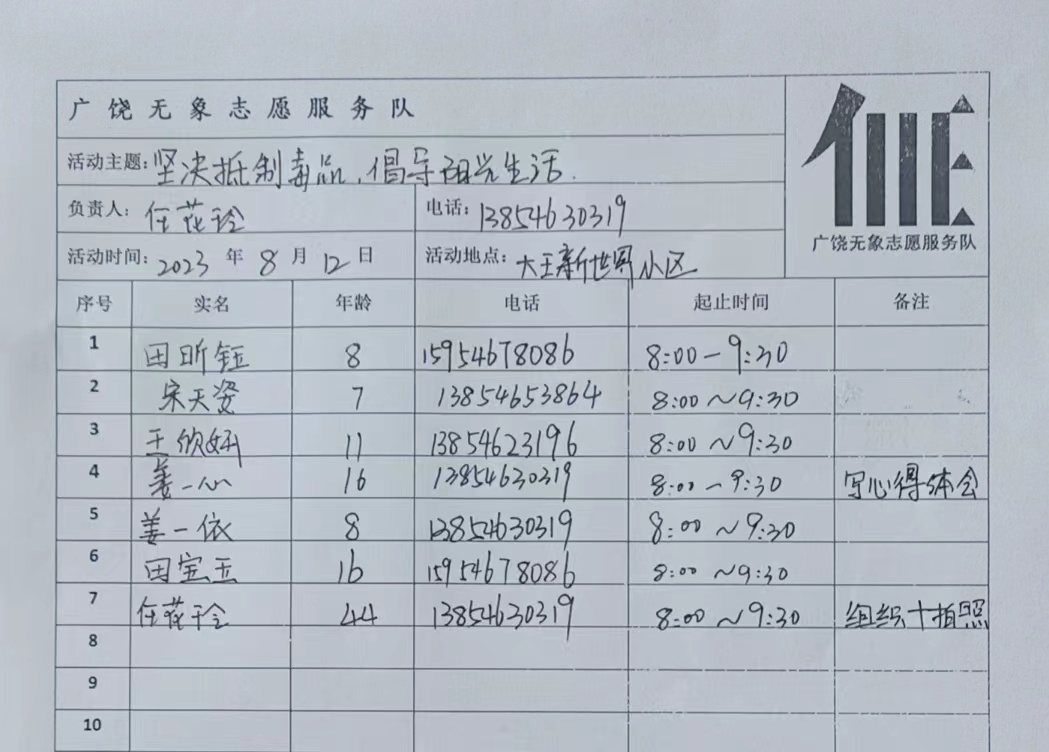 广饶无象志愿服务队
活动主题：坚决抵制毒品，倡导阳光生活.
负责人：任花玲 电话：13854630319
活动时间：2023年8月12日 活动地点：大王新世界小区
广饶无象志愿服务队
序号 实名 年龄 电话 起止时间 备注
1 田昕钰 8 15954678086 8:00-9:30
2 宋天姿 7 13854653864 8:00~9:30
3 王欣妍 11 13854623196 8:00~9:30
4 姜一心 16 13854630319 8:00-9:30 写心得体会
5 姜一依 8 13854630319 8:00~9:30
6 田宝玉 16 15954678086 8:00~9:30
7 任花玲 44 13854630319 8:00~9:30 组织+拍照
8
9
10